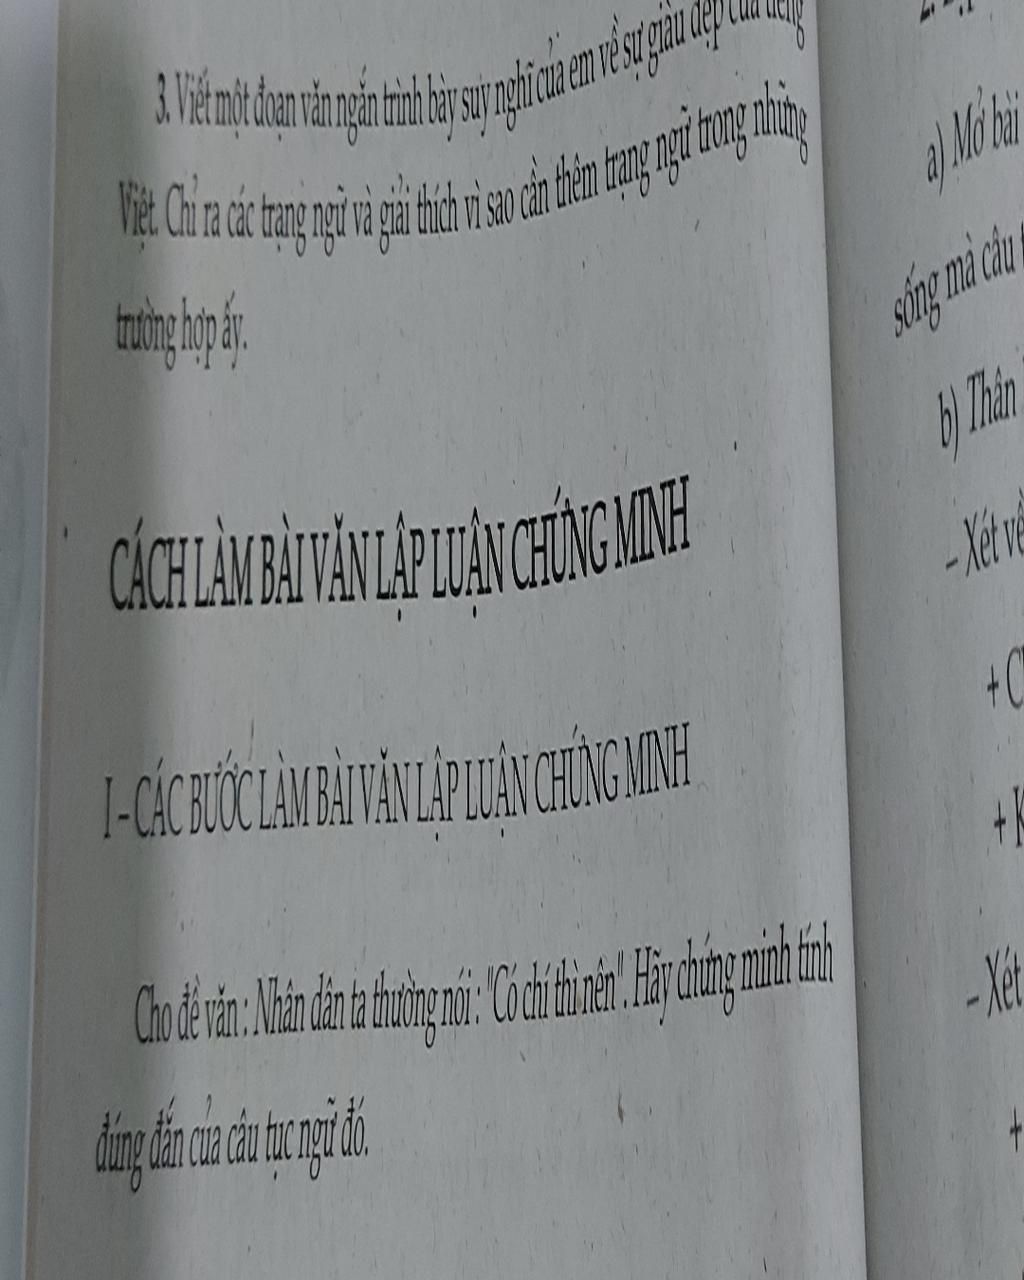 3. Viết một đoạn văn ngắn trình bày suy nghĩ của em về sự giàu đẹp của tiếng
Việt. Chỉ ra các trạng ngữ và giải thích vì sao cần thêm trạng ngữ trong những
trường hợp ấy.
CÁCH LÀM BÀI VĂN LẬP LUẬN CHỨNG MINH
I – CÁC BƯỚC LÀM BÀI VĂN LẬP LUẬN CHỨNG MINH
Cho đề văn : Nhân dân ta thường nói : "Có chí thì nên". Hãy chứng minh tính
đúng đắn của câu tục ngữ đó.
a) Mở bài
sống mà câu
b) Thân
– Xét về
+
+ K
– Xét
+